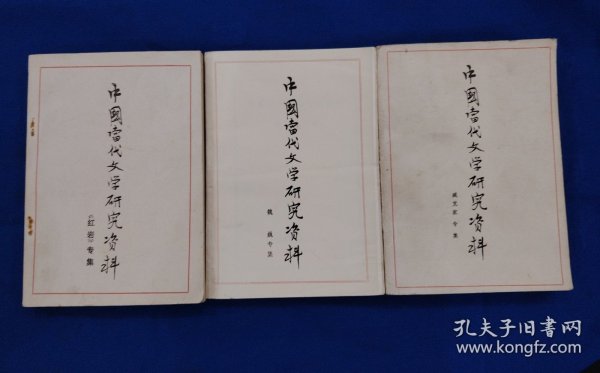 中國當代文学研究资料
《红岩》专集
中國當代文学研究资料
魏巍专集
中國當代文学研究资料
臧克家专集
孔夫子旧书网
www.kongfz.com